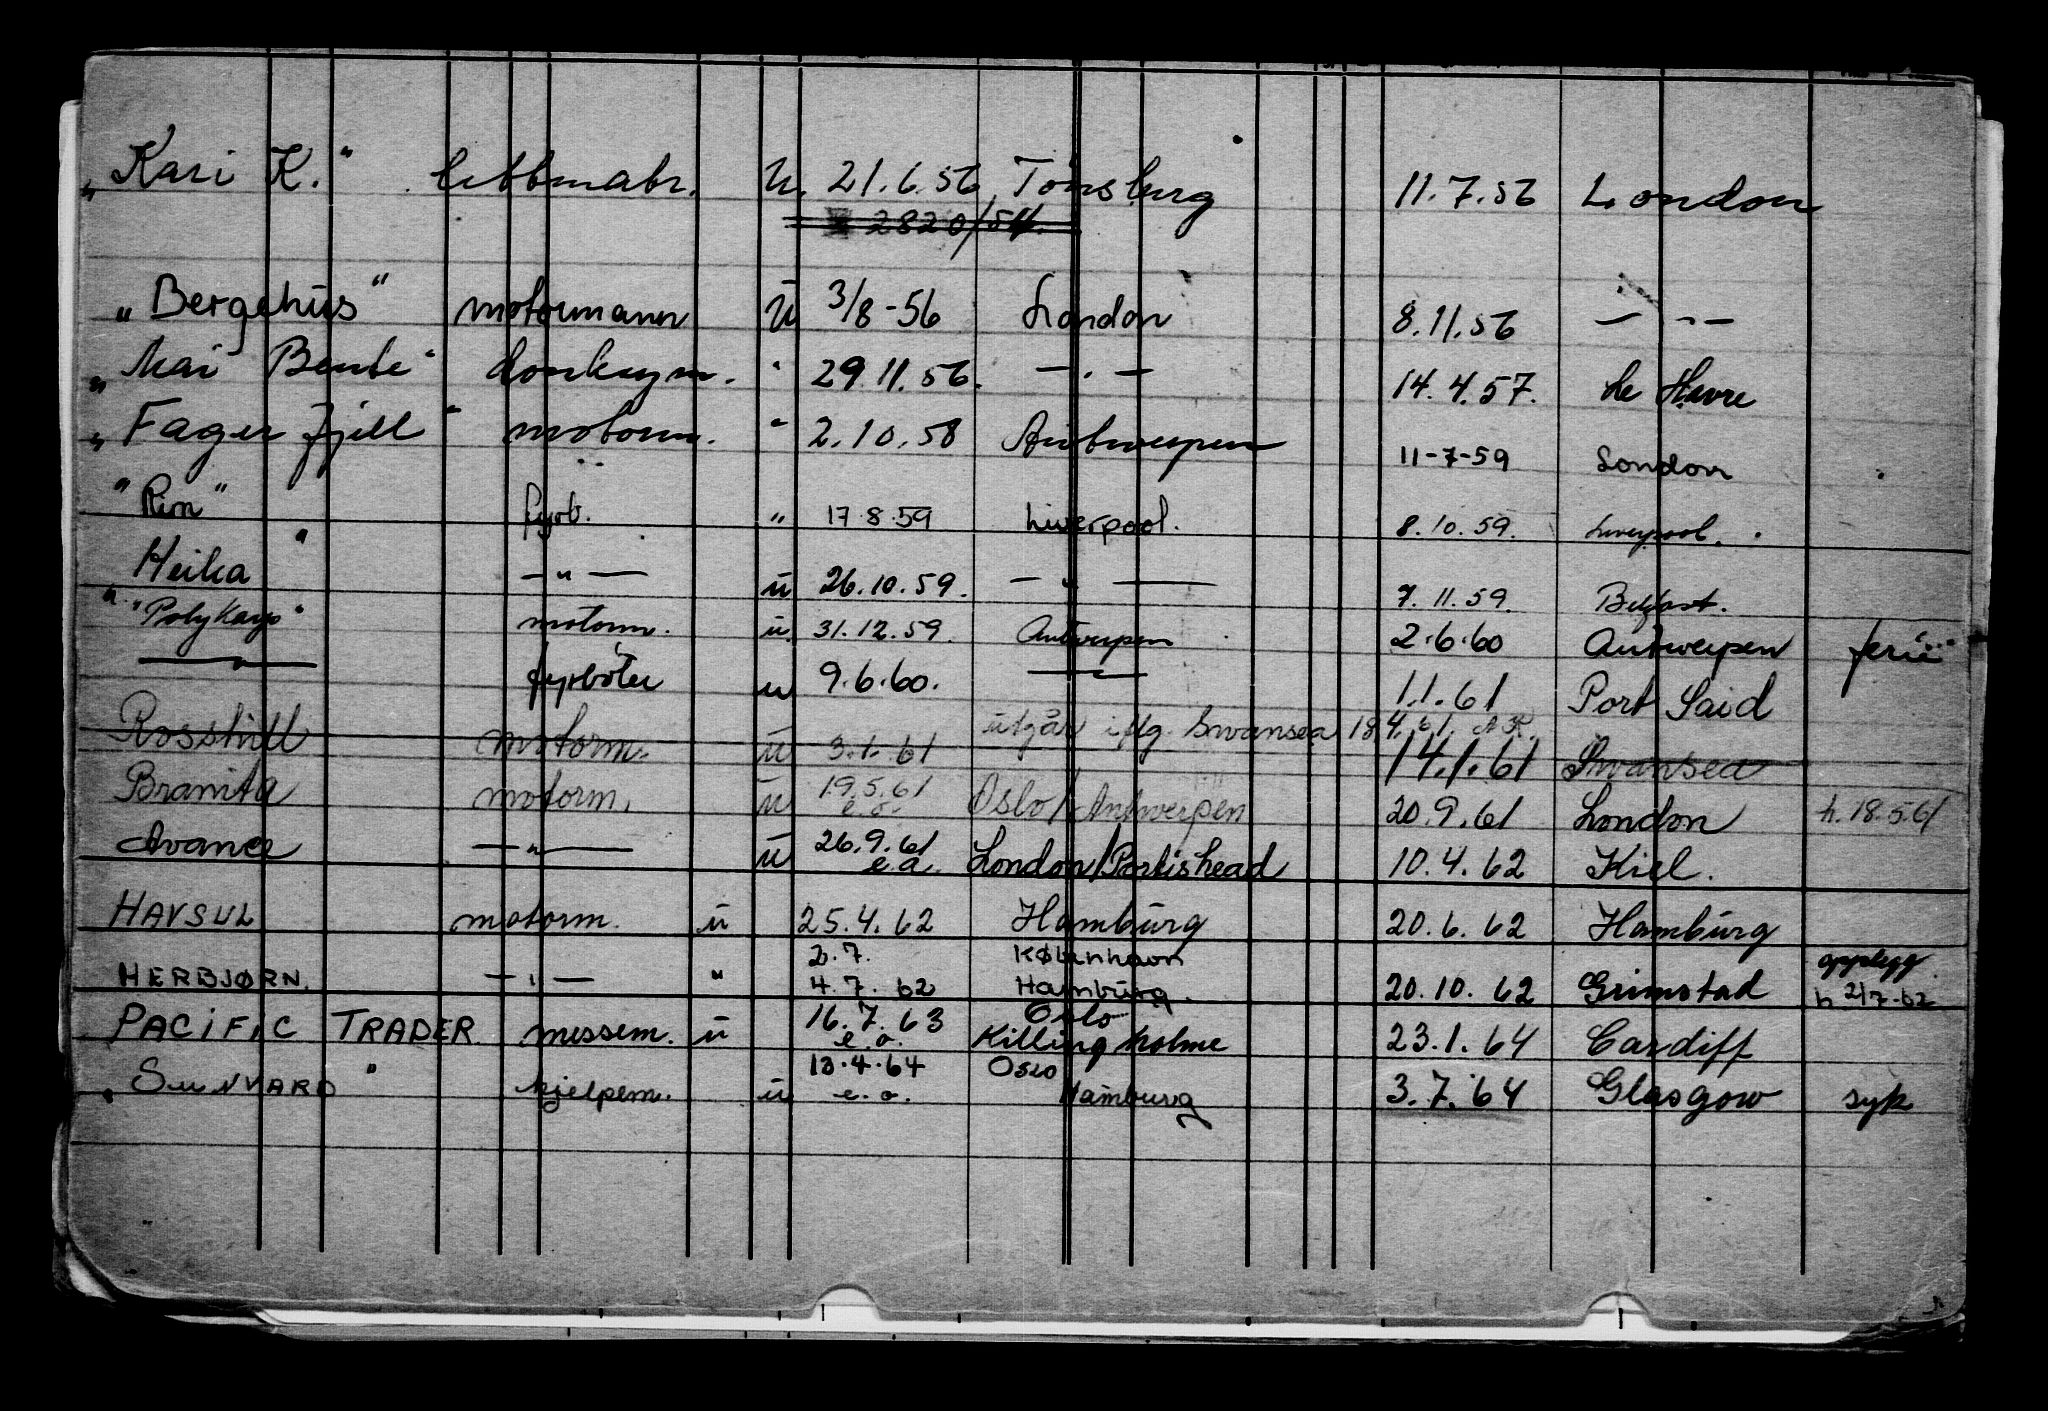 "Kari K." lettmatr. u. 21.6.56 Tønsberg 11.7.56 London
2820/54.
"Bergehus" motormann u 3/8-56 London 8.11.56 — " —
"Mai Bente" donkeym. " 29.11.56. — " — 14.4.57. Le Havre
"Fagerfjell" motorm. " 2.10.58 Antwerpen 11-7-59 London
"Rin" fyrb. " 17.8.59 Liverpool. 8.10.59. Liverpool.
"Heika" — " — u 26.10.59. — " — 7.11.59. Belfast.
"Polykarp" motorm. u. 31.12.59. Antwerpen 2.6.60 Antwerpen ferie
— " — fyrbøter u 9.6.60. — " — 1.1.61 Port Said
utgår iflg. Swansea 18.4.61. A.K.
Rosshill motorm. u 3.1.61 14.1.61 Swansea
Branita motorm. u 19.5.61 e.o. Oslo/Antwerpen 20.9.61 London h. 18.5.61
Avanca — " — u 26.9.61 e.a. London/Portishead 10.4.62 Kiel.
HAVSUL motorm. u 25.4.62 Hamburg 20.6.62 Hamburg
2.7. København opplegg.
HERBJØRN. — " — " 4.7.62 Hamburg. 20.10.62 Grimstad h 2/7-62
16.7.63 Oslo
PACIFIC TRADER messem. u e.o. Killingholme 23.1.64 Cardiff
13.4.64 Oslo
"SUNVARD" hjelpem. u e.o. Hamburg 3.7.64 Glasgow syk